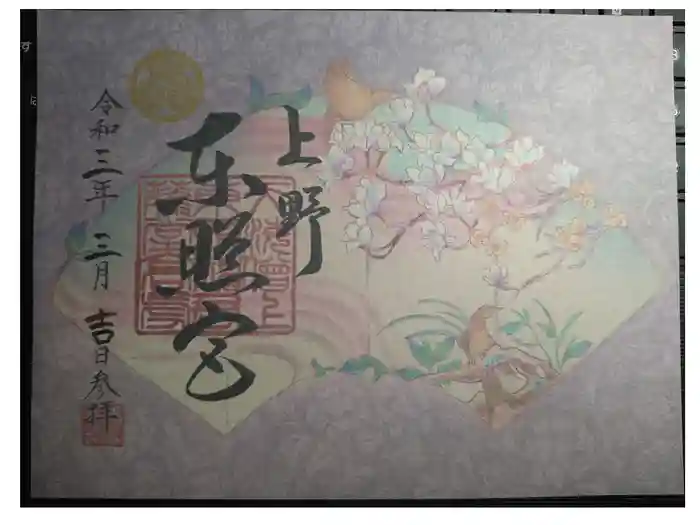 上野
東照宮
令和三年 三月 吉日参拝